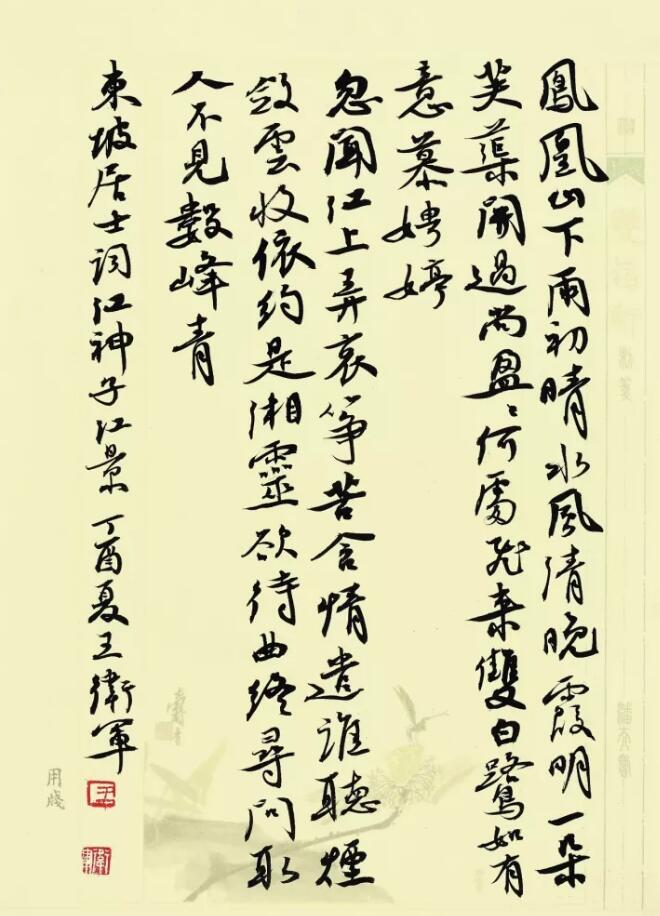 鳳凰山下雨初晴水風清晚霞明一朵
芙蕖開過尚盈〻何處飛來雙白鷺如有
意慕娉婷
忽聞江上弄哀箏苦含情遣誰聽煙
斂雲收依約是湘靈欲待曲終尋問取
人不見數峰青
東坡居士詞江神子江景丁酉夏王衛軍
用牋